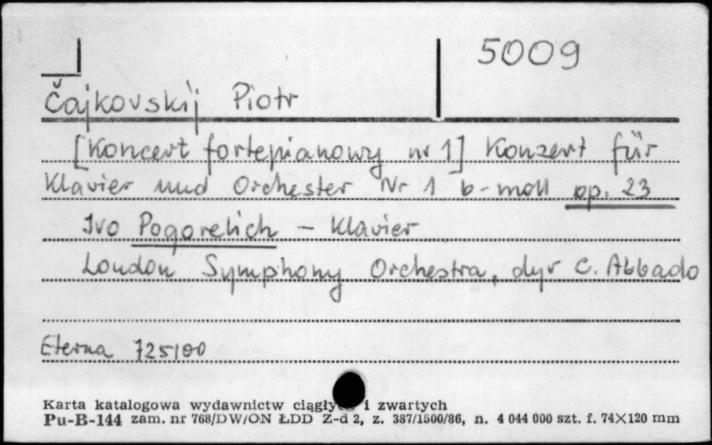 5009
Čajkovskij Piotr
[Koncert fortepianowy nr 1] Konzert für
Klavier und Orchester Nr 1 b-moll op. 23
Ivo Pogorelich - Klavier
London Symphony Orchestra, dyr C. Abbado
Eterna 725100
Karta katalogowa wydawnictw i zwartych
Pu-B-144 zam. nr 768/DW/ON ŁDD Z-d 2, z. 387/1500/86, n. 4 044 000 szt. f. 74×120 mm